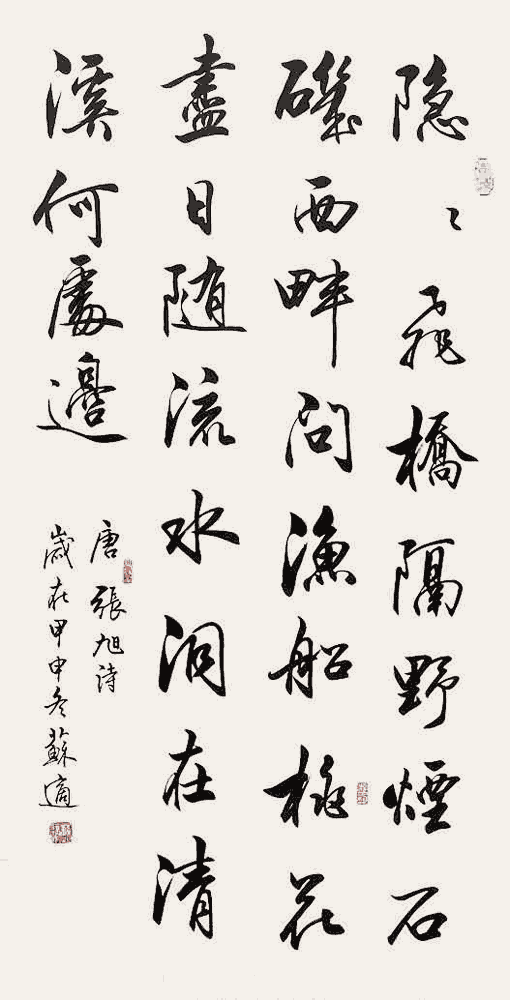 隐〻飛橋隔野煙石
磯西畔问漁船桃花
盡日随流水洞在清
溪何處邊
唐張旭诗
歲在甲申冬蘇適